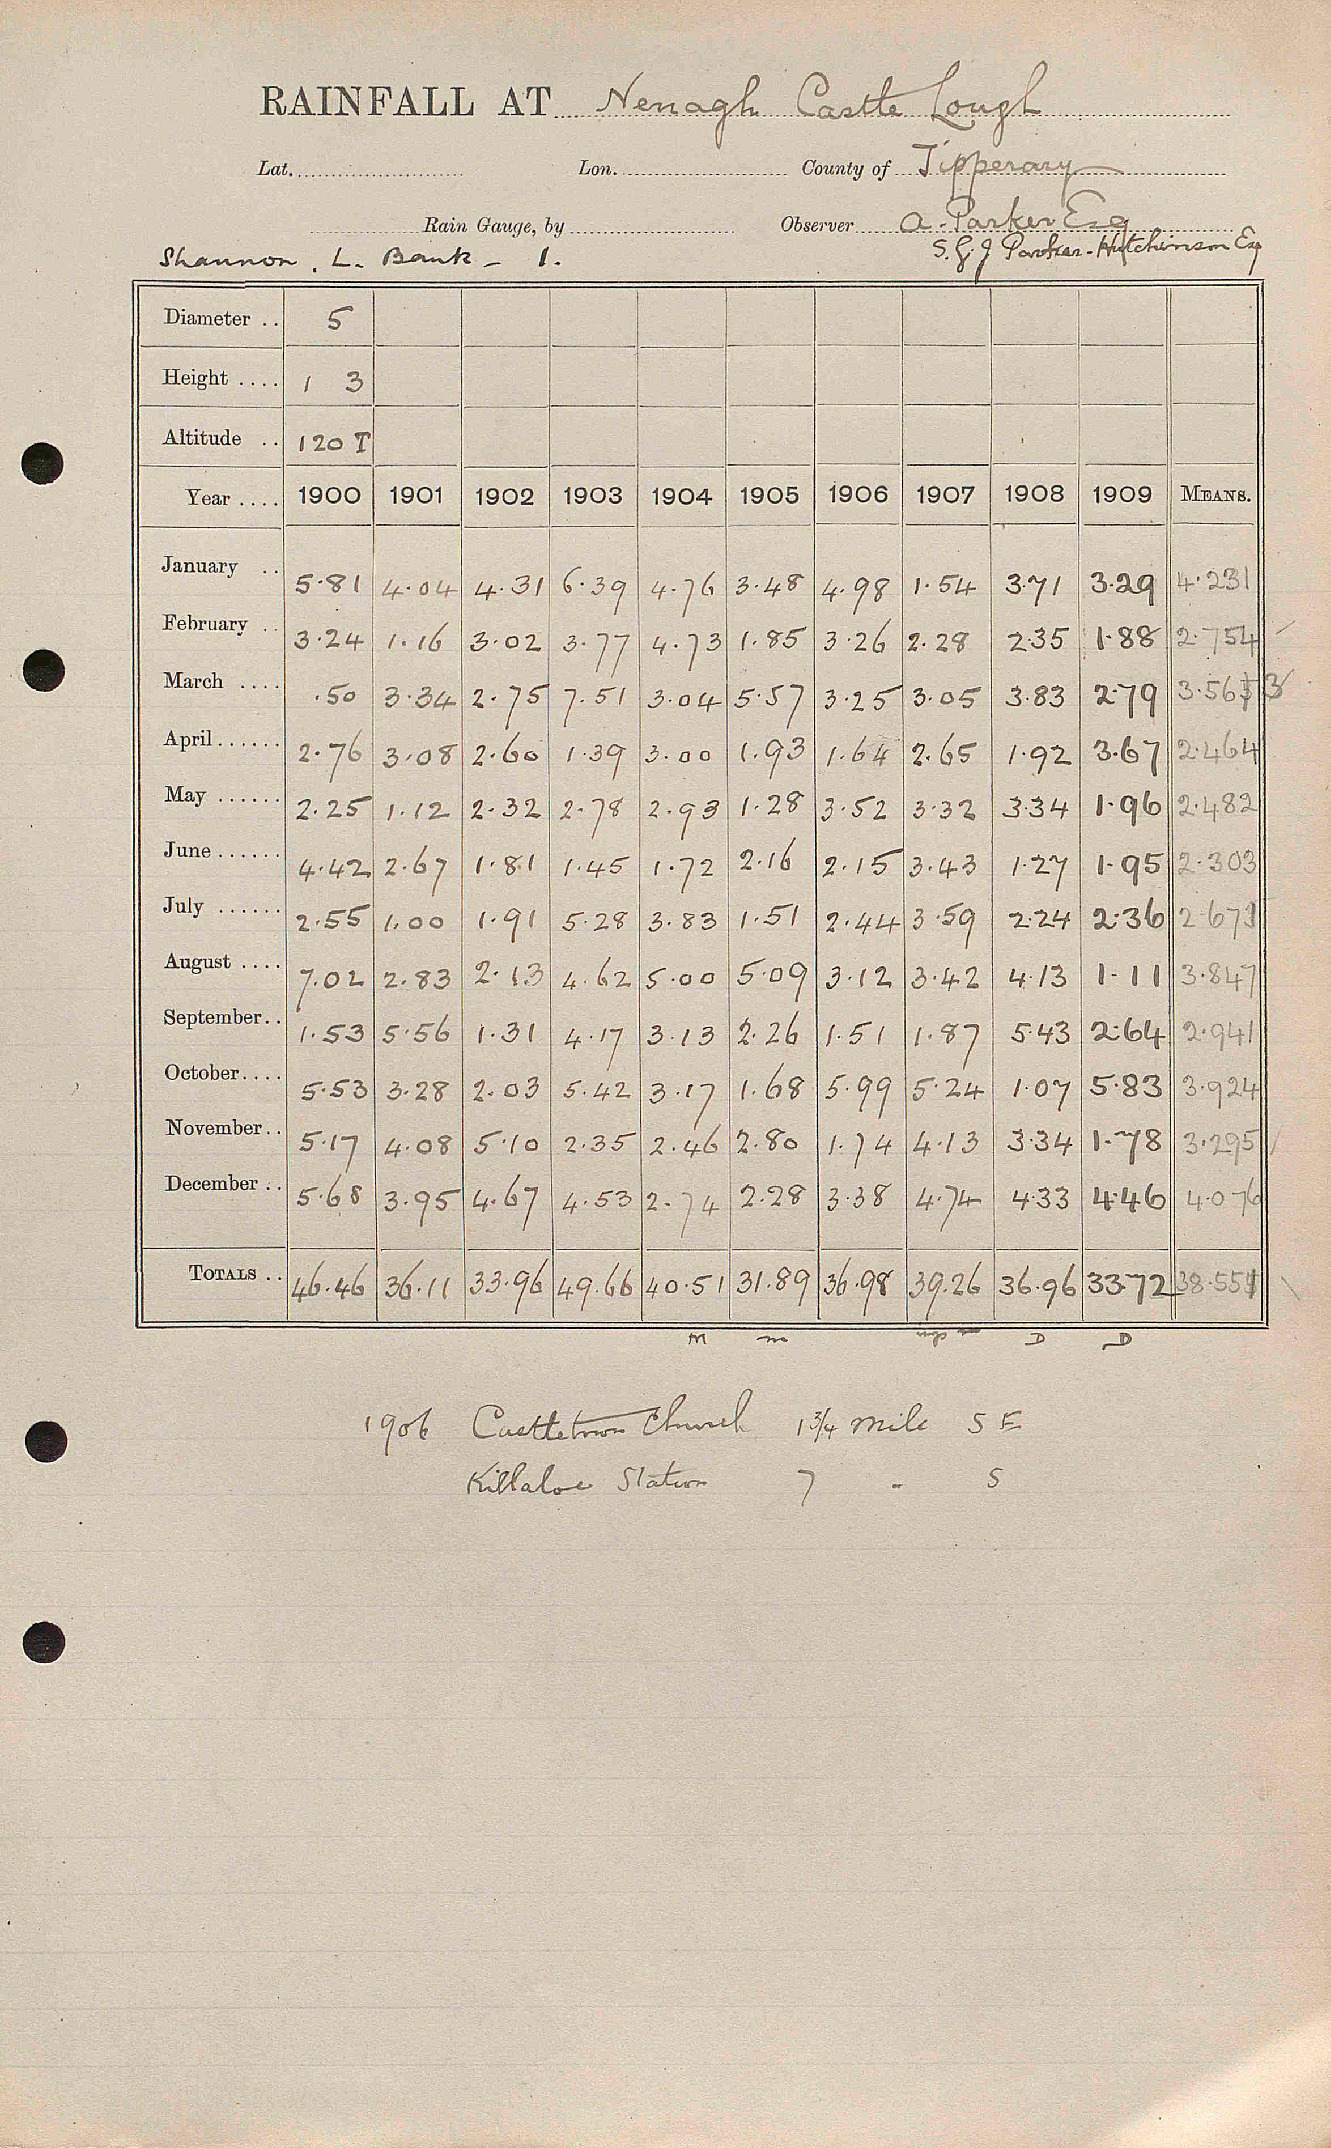 RAINFALL AT Nenagh Castle Lough
Lat. Lon. County of Tipperary
Rain Gauge, by Observer A. Parker Esq
Shannon. L. Bank - 1. S. G. J Parker-Hutchinson Esq
Diameter .. 5
Height .... 1 3
Altitude .. 120 T
Year .... 1900 1901 1902 1903 1904 1905 1906 1907 1908 1909 MEANS.
January .. 5.81 4.04 4.31 6.39 4.76 3.48 4.98 1.54 3.71 3.29 4.231
February .. 3.24 1.16 3.02 3.77 4.73 1.85 3.26 2.28 2.35 1.88 2.754
March .... .50 3.34 2.75 7.51 3.04 5.57 3.25 3.05 3.83 2.79 3.563
April...... 2.76 3.08 2.60 1.39 3.00 1.93 1.64 2.65 1.92 3.67 2.464
May ...... 2.25 1.12 2.32 2.78 2.93 1.28 3.52 3.32 3.34 1.96 2.482
June...... 4.42 2.67 1.81 1.45 1.72 2.16 2.15 3.43 1.27 1.95 2.303
July ...... 2.55 1.00 1.91 5.28 3.83 1.51 2.44 3.59 2.24 2.36 2.671
August .... 7.02 2.83 2.13 4.62 5.00 5.09 3.12 3.42 4.13 1.11 3.847
September.. 1.53 5.56 1.31 4.17 3.13 2.26 1.51 1.87 5.43 2.64 2.941
October.... 5.53 3.28 2.03 5.42 3.17 1.68 5.99 5.24 1.07 5.83 3.924
November.. 5.17 4.08 5.10 2.35 2.46 2.80 1.74 4.13 3.34 1.78 3.295
December .. 5.68 3.95 4.67 4.53 2.74 2.28 3.38 4.74 4.33 4.46 4.076
TOTALS .. 46.46 36.11 33.96 49.66 40.51 31.89 36.98 39.26 36.96 33.72 38.551
M m D D
1906 Castletown Church 1 3/4 mile S E
Killaloe Station 7 " S